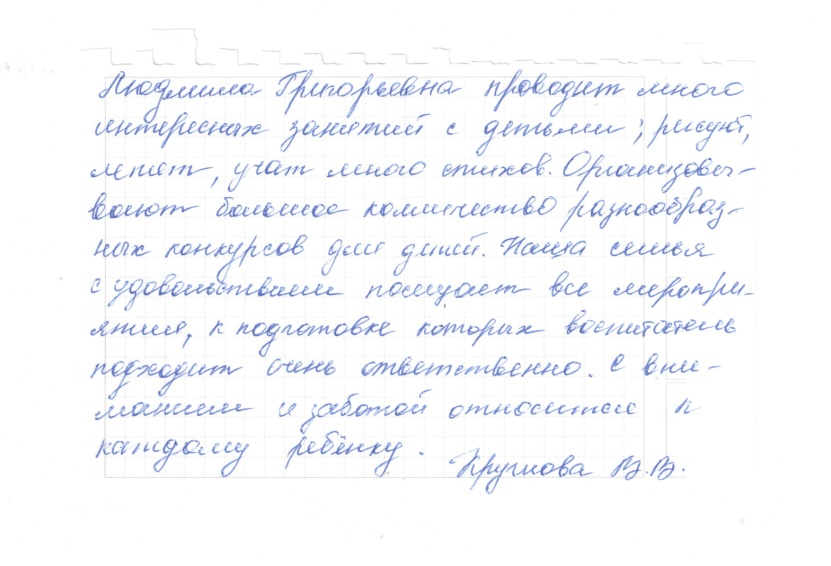 Людмила Григорьевна проводит много
интересных занятий с детьми; рисуют,
лепят, учат много стихов. Организовы-
вают большое количество разнообраз-
ных конкурсов для детей. Наша семья
с удовольствием посещает все меропри-
ятия, к подготовке которых воспитатель
подходит очень ответственно. С вни-
манием и заботой относится к
каждому ребёнку.
Круглова В.В.